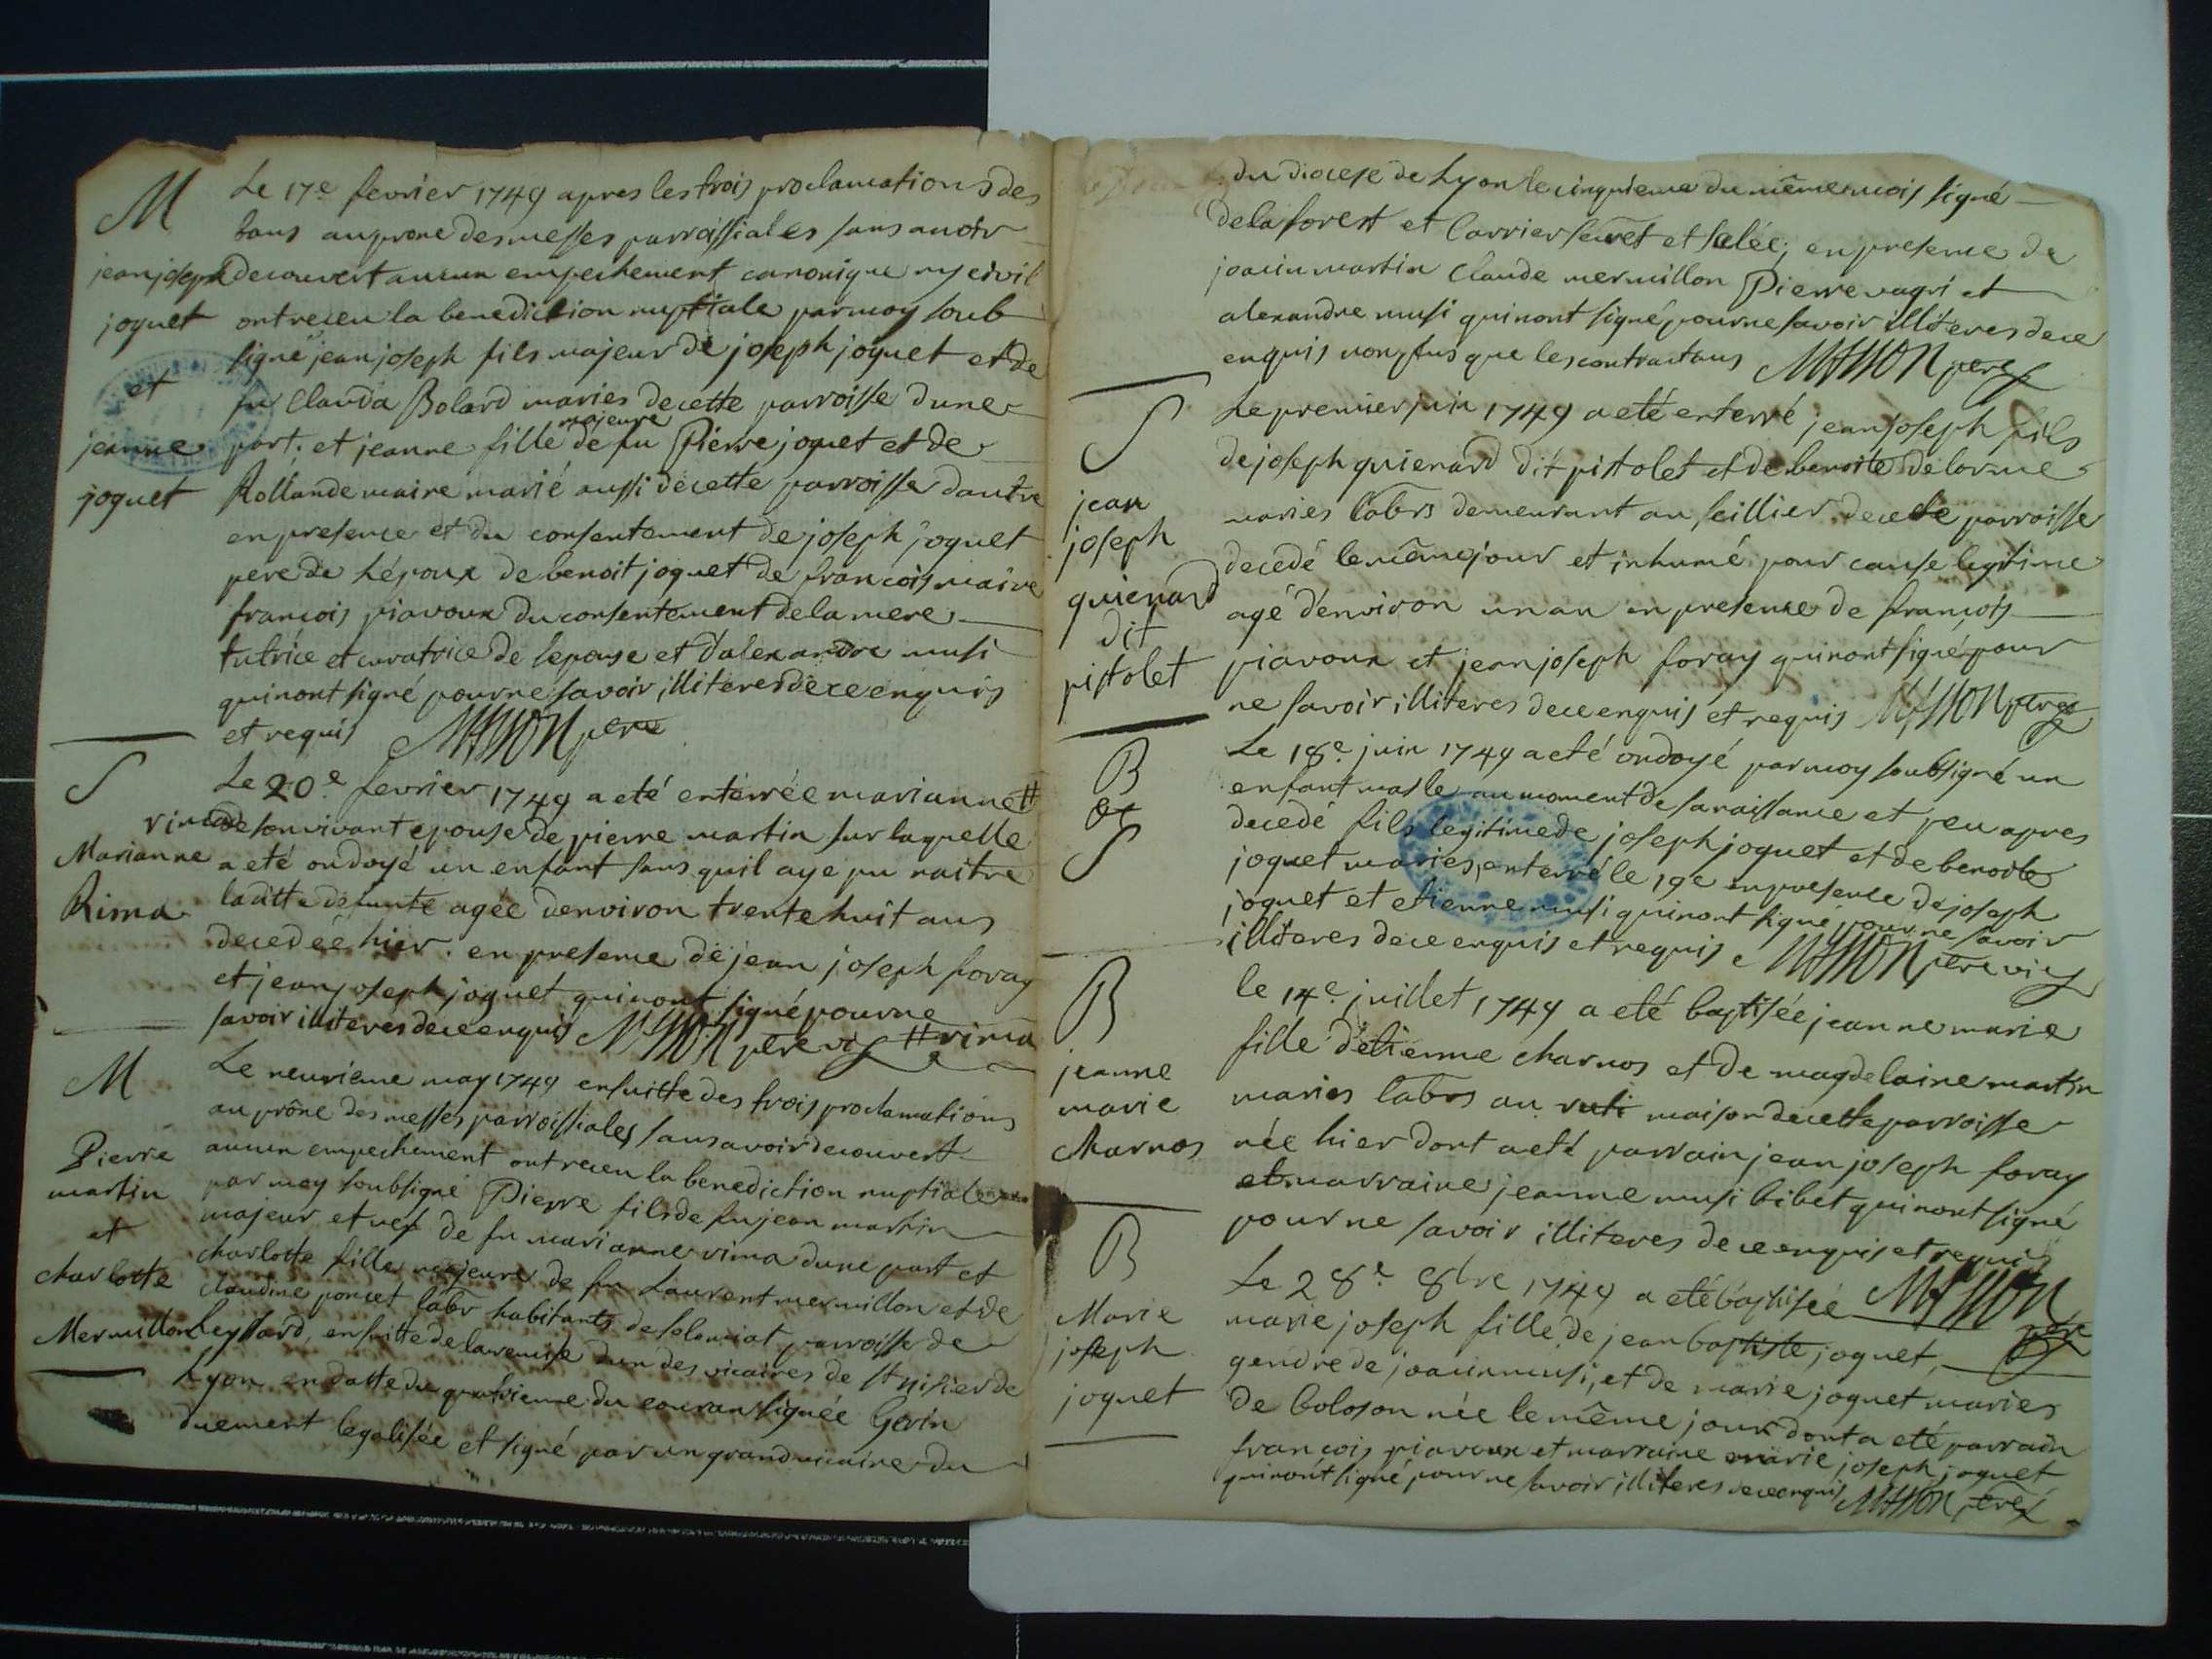 M
jean joseph
joguet
et
jeanne
joguet
Le 17.e fevrier 1749 apres les trois proclamations des
bans au prone des messes parroissiales sans avoir
decouvert aucun empechement canonique ny civil
ont receu la benediction nuptiale par moy soub
signé jean joseph fils majeur de joseph joguet et de
fu Clauda Bolard maries de cette parroisse dune
part. et jeanne fille majeure de fu Pierre joguet et de
Rollande maire marié aussi de cette parroisse dautre
en presence et du consentement de joseph joguet
pere de lépoux de benoit joguet de francois maire
francois piavoux du consentement de la mere
tutrice et curatrice de lepouse et dalexandre musi
qui nont signé pour ne savoir illiteres de ce enquis
et requis MASSON pere
S
Marianne
Rima
Le 20.e fevrier 1749 a eté enterrée marianne #
rima de son vivant epouse de pierre martin sur laquelle
a eté ondoyé un enfant sans quil aye pu naitre
laditte defunte agée denviron trente huit ans
decedée hier. en presence de jean joseph foray
et jean joseph joguet qui nont signé pour ne
savoir illiteres de ce enquis MASSON pere vic # rima
M
Pierre
martin
et
charlotte
Mermillon
Le neuvieme may 1749 ensuitte des trois proclamations
au prône des messes parroissiales sans avoir decouvert
aucun empechement ont receu la benediction nuptiale
par moy soubsigné Pierre fils de fu jean martin
majeur et vef de fu marianne rima dune part et
charlotte fille majeure de fu Laurent mermillon et de
claudine poncet labr habitants de solomiat parroisse de
Leyssard, ensuitte de la remise dun des vicaires de St nisier de
Lyon en datte du quatrieme du couran signée Gerin
duement legalisée et signé par un grand vicaire du
du diocese de Lyon le cinquieme du même mois signé
de la forest et Carrier secret et selée; en presence de
joacin martin Claude mermillon Pierre vagri et
alexandre musi qui nont signé pour ne savoir illiteres de ce
enquis non plus que les contractans MASSON pere
S
jean
joseph
quienard
dit
pistolet
Le premier juin 1749 a eté enterré jean joseph fils
de joseph quienard dit pistolet et de benoite delorme
maries labrs demeurant au seillier de cette parroisse
decedé le même jour et inhumé pour cause legitime
agé d'environ un an en presence de francois
piavoux et jean joseph foray qui nont signé pour
ne savoir illiteres de ce enquis et requis MASSON pere
B
et
S
Le 18.e juin 1749 a eté ondoyé par moy soubsigné un
enfant masle au moment de sa naissance et peu apres
decedé fils legitime de joseph joguet et de benoite
joguet maries, enterré le 19e en presence de joseph
joguet et etienne musi qui nont signé pour ne savoir
illiteres de ce enquis et requis MASSON pere vic
B
jeanne
marie
charnos
le 14.e juillet 1749 a eté baptisée jeanne marie
fille d'etienne charnos et de magdelaine martin
maries labrs au ruti maison de cette parroisse
née hier dont a eté parrain jean joseph foray
et marraine jeanne musi bibet qui nont signé
pour ne savoir illiteres de ce enquis et requis
MASSON pere
B
Marie
joseph
joguet
Le 28.e 8bre 1749 a eté baptisée
marie joseph fille de jean baptiste joguet,
gendre de joacin musi, et de marie joguet maries
de boloson née le même jour dont a eté parrain
francois piavoux et marraine marie joseph joguet
qui nont signé pour ne savoir illiteres de ce enquis MASSON pere